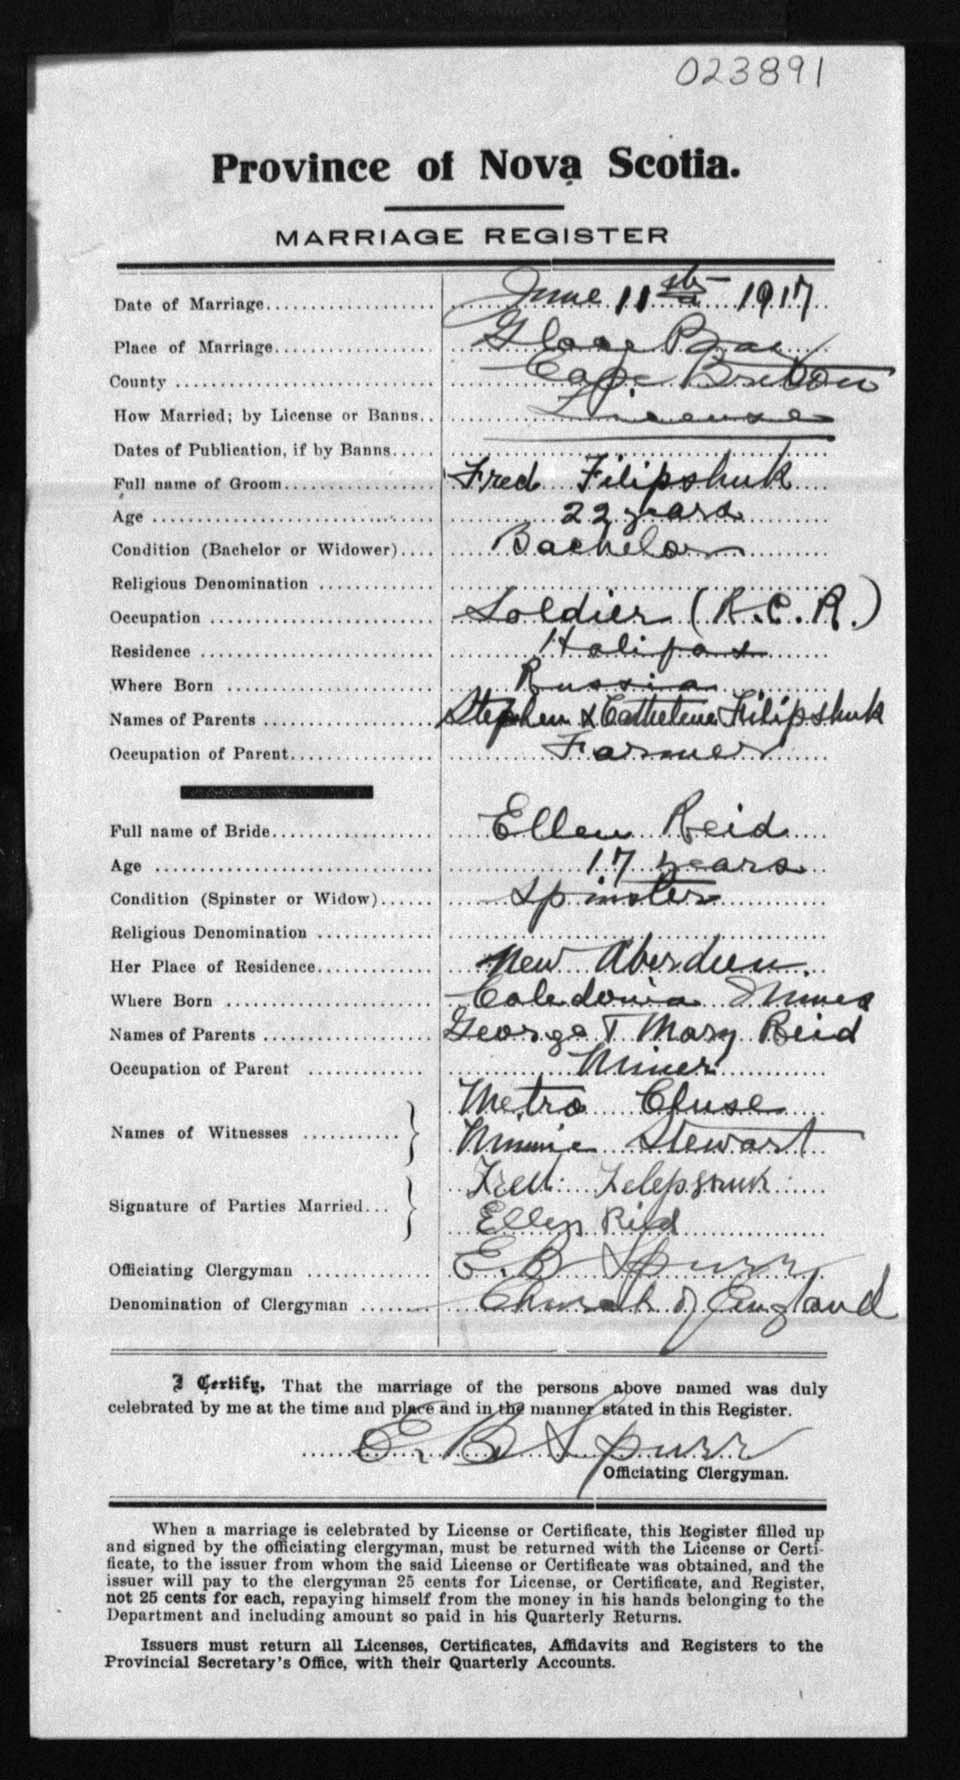 023891
Province of Nova Scotia.
MARRIAGE REGISTER
Date of Marriage.................. June 11th 1917
Place of Marriage................. Glace Bay
County ........................... Cape Breton
How Married; by License or Banns.. License
Dates of Publication, if by Banns.....
Full name of Groom................ Fred Filipshuk
Age .............................. 22 years
Condition (Bachelor or Widower).... Bachelor
Religious Denomination ............
Occupation ....................... Soldier (R.C.R.)
Residence ........................ Halifax
Where Born ....................... Russia
Names of Parents ................. Stephen & Cathelena Filipshuk
Occupation of Parent.............. Farmer
Full name of Bride................ Ellen Reid
Age .............................. 17 years
Condition (Spinster or Widow)...... Spinster
Religious Denomination ............
Her Place of Residence............ New Aberdeen.
Where Born ....................... Caledonia Mines
Names of Parents ................. George & Mary Reid
Occupation of Parent ............. Miner
Metro
Names of Witnesses ........... }
Minnie Stewart
Fred
Signature of Parties Married... }
Ellen Reid
Officiating Clergyman ............ E. B. Spurr
Denomination of Clergyman ....... Church of England
I Certify, That the marriage of the persons above named was duly
celebrated by me at the time and place and in the manner stated in this Register.
E. B Spurr
Officiating Clergyman.
When a marriage is celebrated by License or Certificate, this Register filled up
and signed by the officiating clergyman, must be returned with the License or Certi-
ficate, to the issuer from whom the said License or Certificate was obtained, and the
issuer will pay to the clergyman 25 cents for License, or Certificate, and Register,
not 25 cents for each, repaying himself from the money in his hands belonging to the
Department and including amount so paid in his Quarterly Returns.
Issuers must return all Licenses, Certificates, Affidavits and Registers to the
Provincial Secretary's Office, with their Quarterly Accounts.